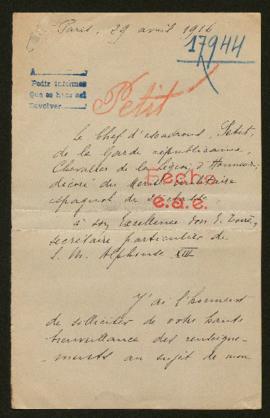 Paris, 29 avril 1916
17944
A
Pedir informes
que se hace así
Devolver
Petit
Le Chef d'escadrons, Petit,
de la Garde républicaine,
Chevalier de la Légion d'Honneur,
décoré du Mérite militaire
espagnol
Fecho
e.a.e.
à son Excellence Don E. Torrès,
secrétaire particulier de
S. M. Alphonse XIII
J'ai l'honneur
de solliciter de votre haute
bienveillance des renseigne-
ments au sujet de mon